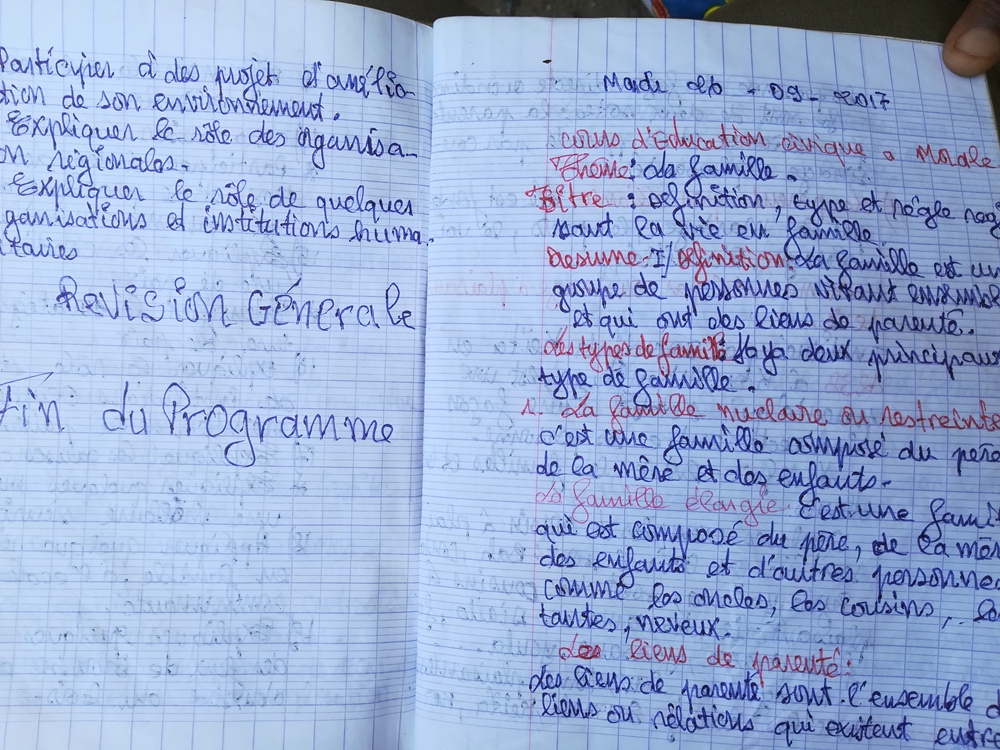 Participer à des projet d'amélio-
tion de son environnement.
Expliquer le rôle des organisa-
n régionales.
Expliquer le rôle de quelques
ganisations et institutions huma-
taires
Révision Générale
Fin du Programme
Mardi 26 - 09 - 2017
cours d'Education civique a Morale
Thème: La famille.
Titre : Définition, type et règle regi
sant la vie en famille
Resume I/ Définition: La famille est un
groupe de personnes vivant ensemble
et qui ont des liens de parenté.
des types de famille Il ya deux principaux
type de famille.
1. La famille nuclaire ou restreinte
c'est une famille composé du père
de la mère et des enfants.
La famille élargie c'est une fami
qui est composé du père, de la mèr
des enfants et d'autres personnes
comme les oncles, les cousins,
tantes, neveux.
Les liens de parenté:
des liens de parenté sont l'ensemble d
liens ou rélations qui existent entre